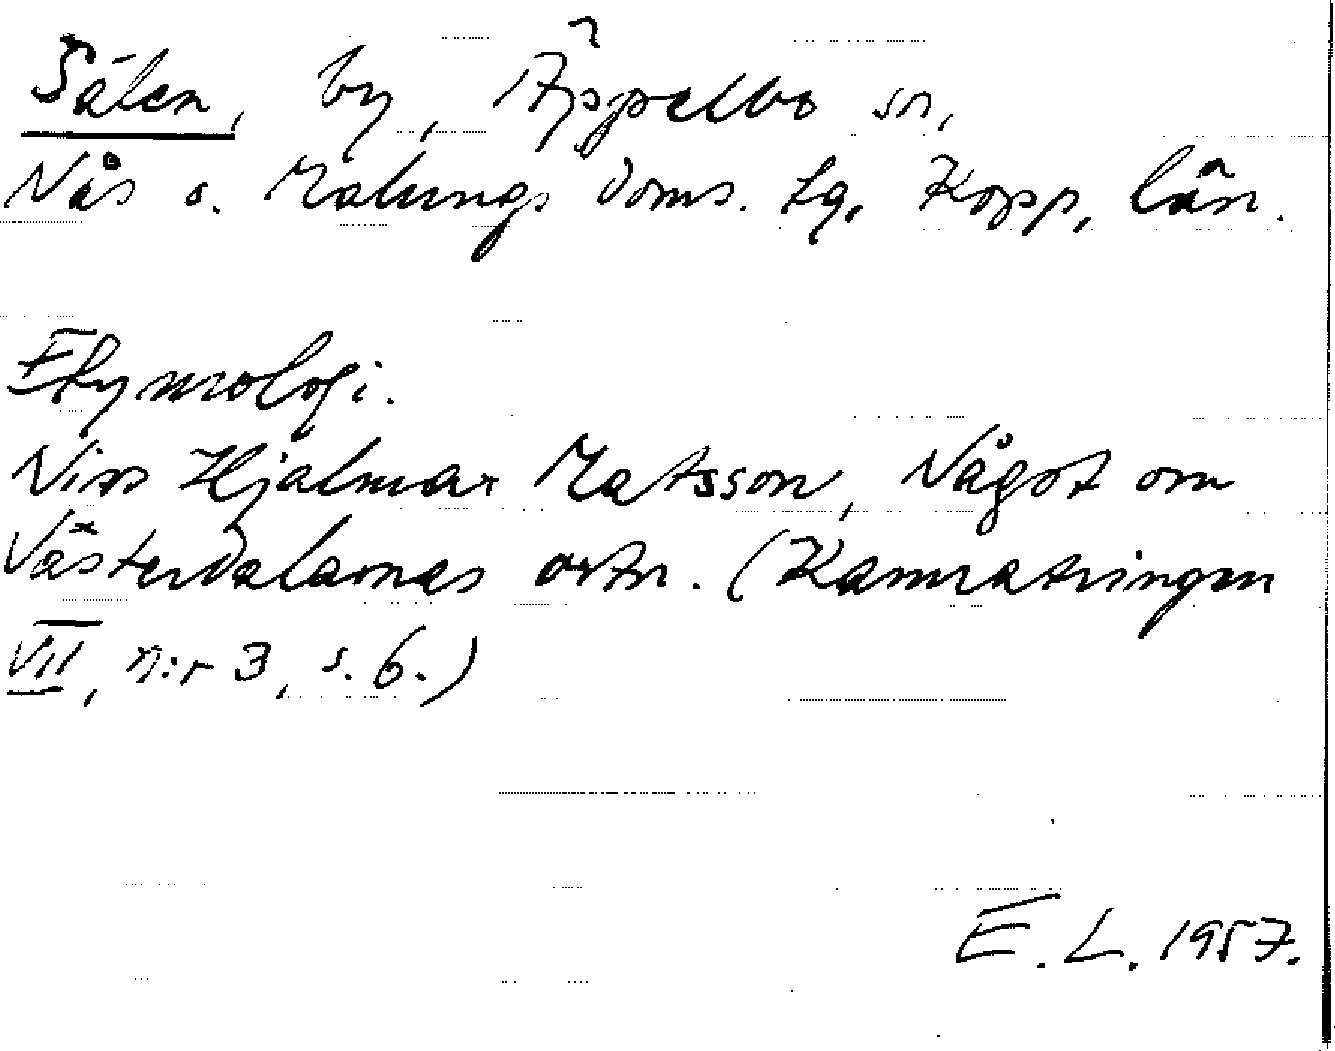 Sälen, by, Äppelbo sn,
Nås o. Malungs doms. tg, Kopp. län.
Etymologi.
Niss Hjalmar Matsson, Något om
Västerdalarnas ortn. (Kamratringen
VII, n:r 3, s. 6.)
E. L. 1957.